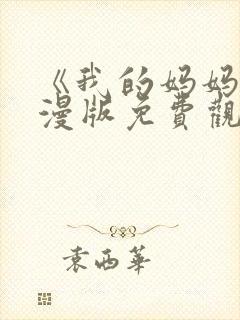 《我的妈妈
漫版免費觀
袁西華